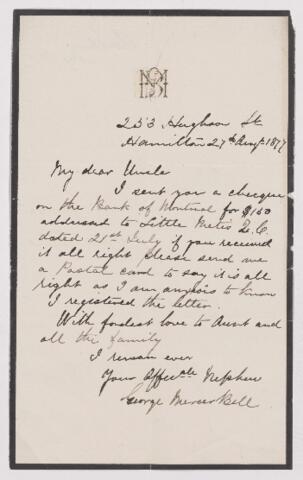 253 Hughson St
Hamilton 27th Augt 1877
My dear Uncle
I sent you a cheque
on the Bank of Montreal for $150
addressed to Little Metis L.C.
dated 21st July if you received
it all right please send me
a Postal card to say it is all
right as I am anxious to know
I registered the letter.
With fondest love to Aunt and
all the family
I remain ever
Your Affecate Nephew
George Mercer Bell